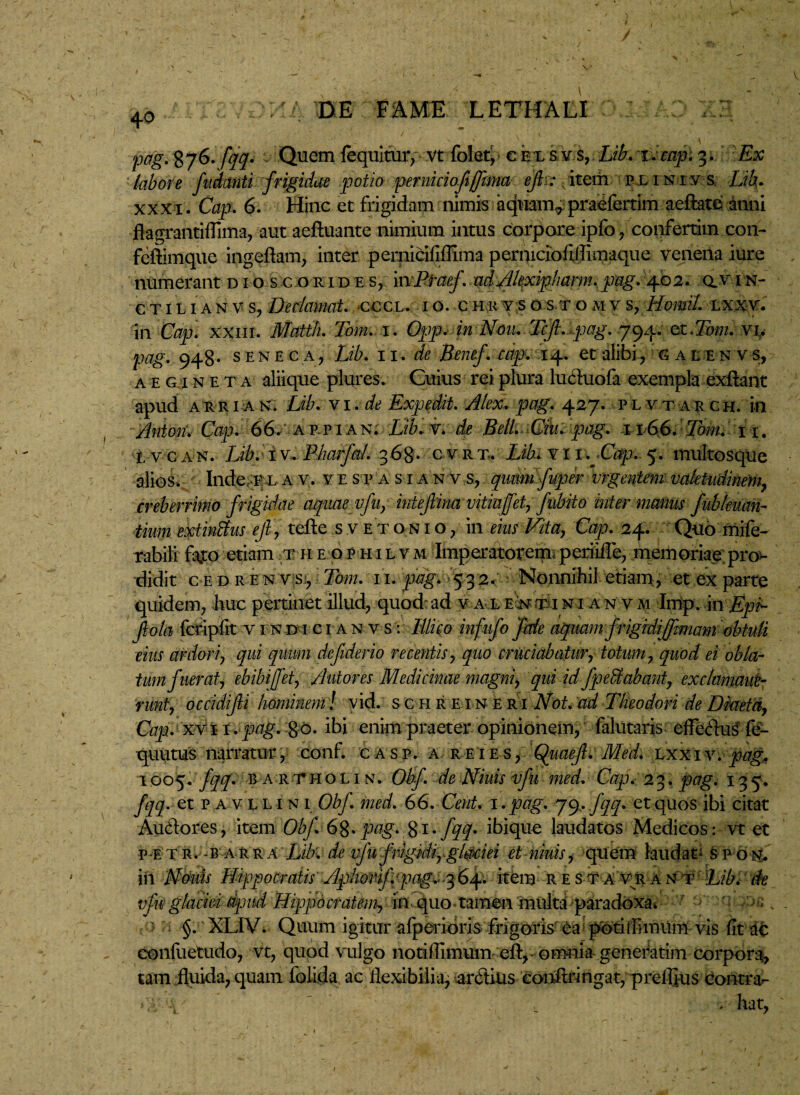 40 DE FAME LETHALI
pag. 876. fqq. Quem ſequitur, vt ſolet, CELSVS, Lib. I. cap. 3. Ex
labore ſudanti frigidae potio pernicioſiſſima eſt: item PLINIVS Lib.
XXXI. Cap. 6. Hinc et frigidam nimis aquam, praeſertim aeſtate anni
flagrantiſſima, aut aeſtuante nimium intus corpore ipſo, confertim con-
feſtimque ingeſtam, inter perniciſiſſima pernicioſiſſimaque venena iure
numerant DIOSCORIDES, in Praef. ad Alexipharm. pag. 402. QVIN-
CTILIANVS, Declamat. CCCL. IO. CHRYSOSTOMVS, Homil. LXXV.
in Cap. XXIII. Matth. Tom. I. Opp. in Nou. Teſt. pag. 794. et Tom. VI.
pag. 948. SENECA, Lib. II. de Benef. cap. 14. et alibi, GALENVS,
AEGINETA aliique plures. Cuius rei plura luctuoſa exempla exſtant
apud ARRIAN. Lib. VI. de Expedit. Alex. pag. 427. PLVTARCH. in
Anton. Cap. 66. APPIAN. Lib. V. de Bell. Ciu. pag. 1166. Tom. II.
LVCAN. Lib. IV. Pharſal. 368. CVRT. Lib. VII. Cap. 5. multosque
alios. Inde FLAV. VESPASIANVS, quum ſuper vrgentem valetudinem,
creberrimo frigidae aquae vſu, inteſtina vitiaſſet, ſubito inter manus ſubleuan-
tium extinctus eſt, teſte SVETONIO, in eius Vita, Cap. 24. Quo miſe-
rabili fato etiam THEOPHILVM Imperatorem periiſſe, memoriae pro-
didit CEDRENVS, Tom. II. pag. 532. Nonnihil etiam, et ex parte
quidem, huc pertinet illud, quod ad VALENTINIANVM Imp. in Epi-
ſtola ſcripſit VINDICIANVS: Illico infuſo fate aquam frigidiſſimam obtuli
eius ardori, qui quum deſiderio recentis, quo cruciabatur, totum, quod ei obla-
tum fuerat, ebibiſſet, Autores Medicinae magni, qui id ſpectabant, exclamaue-
runt, occidiſti hominem! vid. SCHREINERI Not. ad Theodori de Diaeta,
Cap. XVII. pag. 80. ibi enim praeter opinionem, ſalutaris effectus ſe-
quutus narratur, conf. CASP. A REIES, Quaeſt. Med. LXXIV. pag.
1005. ſqq. BARTHOLIN. Obſ. de Niuis vſu med. Cap. 23. pag. 135.
ſqq. et PAVLLINI Obſ. med. 66. Cent. 1. pag. 79. ſqq. et quos ibi citat
Auctores, item Obſ. 68. pag. 81. ſqq. ibique laudatos Medicos: vt et
PETR. BARRA Lib. de vſu frigidi, glaciei et niuis, quem laudat SPON.
in Nouis Hippocratis Aphoriſ. pag. 364. item RESTAVRANT Lib. de
vſu glaciei apud Hippocratem, in quo tamen multa paradoxa.
§. XLIV. Quum igitur aſperioris frigoris ea potiſſimum vis ſit ac
conſuetudo, vt, quod vulgo notiſſimum eſt, omnia generatim corpora,
tam fluida, quam ſolida ac flexibilia, arctius conſtringat, preſſius contra-
hat,